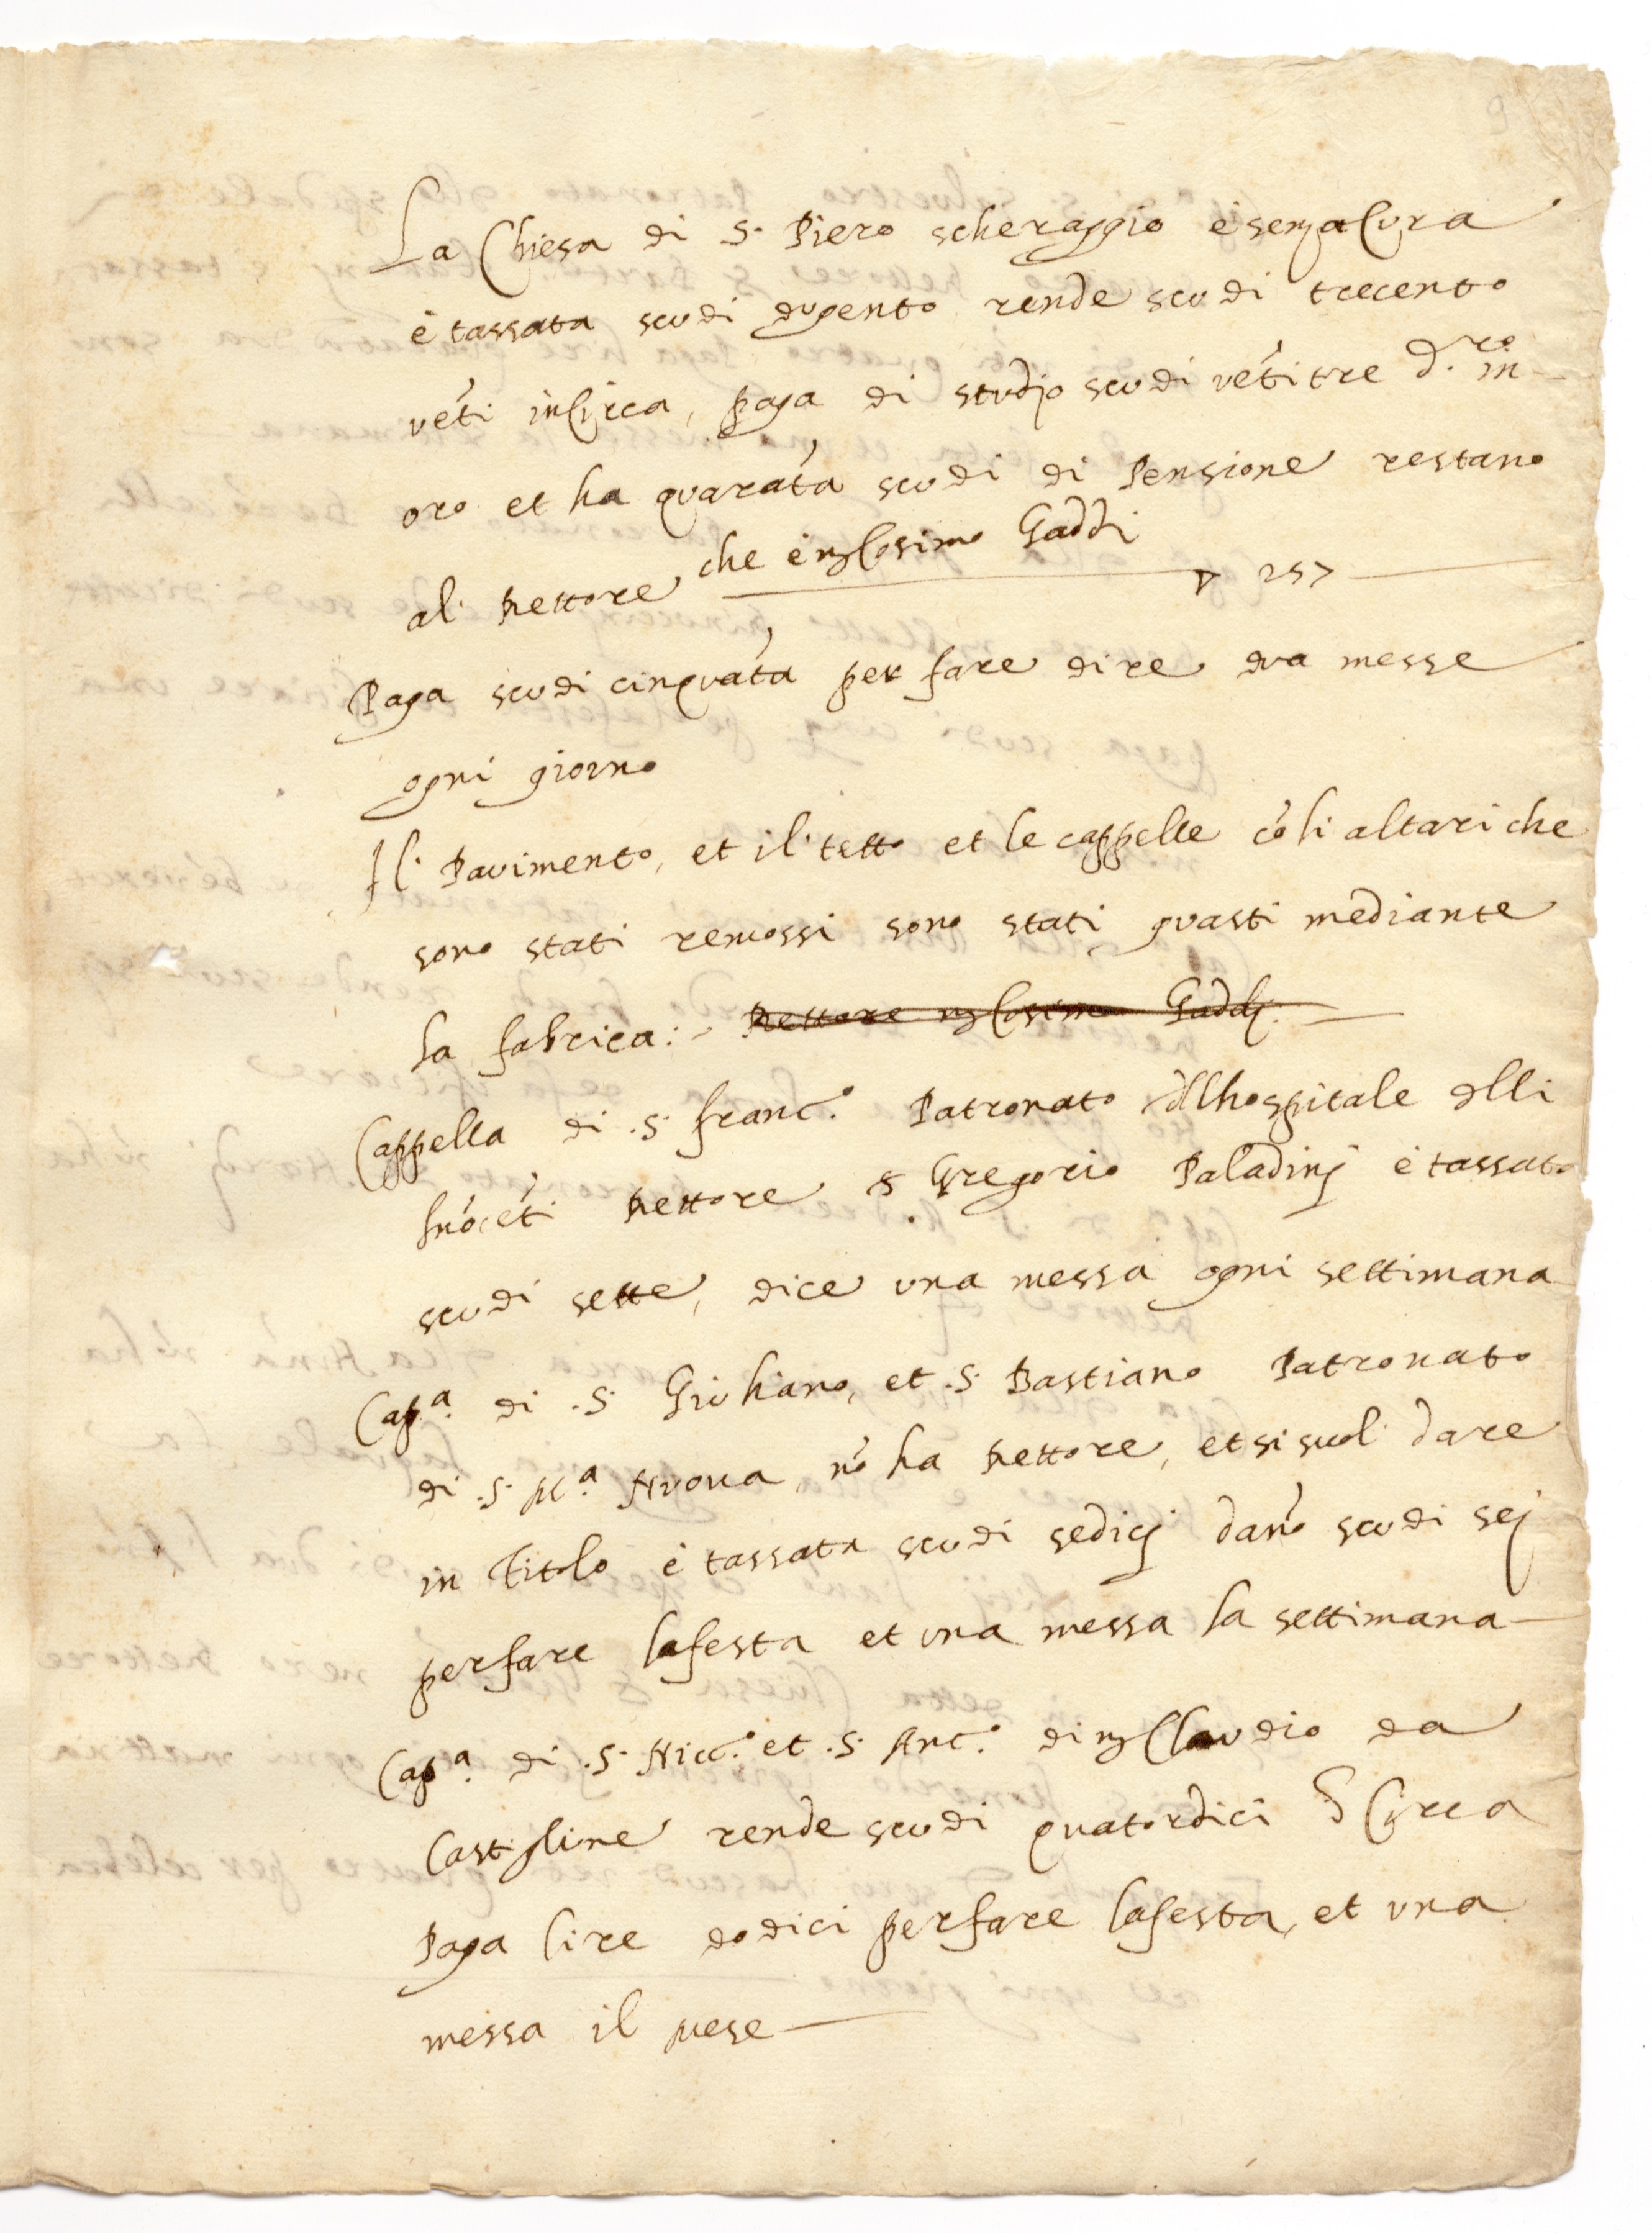 La Chiesa di S. Piero scheraggio è senza Cura
è tassata scudi dugento rende scudi trecento
vēti in Circa, paga di studio scudi vētitre d.ro in
oro et ha quarāta scudi di Pensione restano
al Rettore che è mʒ Cosimo Gaddi ▽ 257
Paga scudi cinquāta per fare dire dua messe
ogni giorno
Il Pavimento, et il tetto et le cappelle cō li altari che
sono stati remossi sono stati guasti mediante
la fabrica: Rettore mʒ Cosimo Gaddj
Cappella di .S. franc.o Patronato dllhospitale dlli
Inōcēti Rettore Gregorio Paladinj è tassato
scudi sette, dice una messa ogni settimana
Capp.a di .S. Giuliano, et .S. Bastiano Patronato
di .S. M.a Nuova, nō ha Rettore, et si suol dare
in Titolo è tassata scudi sedicj danō scudi sej
per fare la festa et una messa la settimana
Capp.a di .S. Nicc.o et .S. Ant.o di mʒ Claudio da
Castiglione rende scudi quatordici Circa
Paga lire dodici per fare la festa, et una
messa il mese